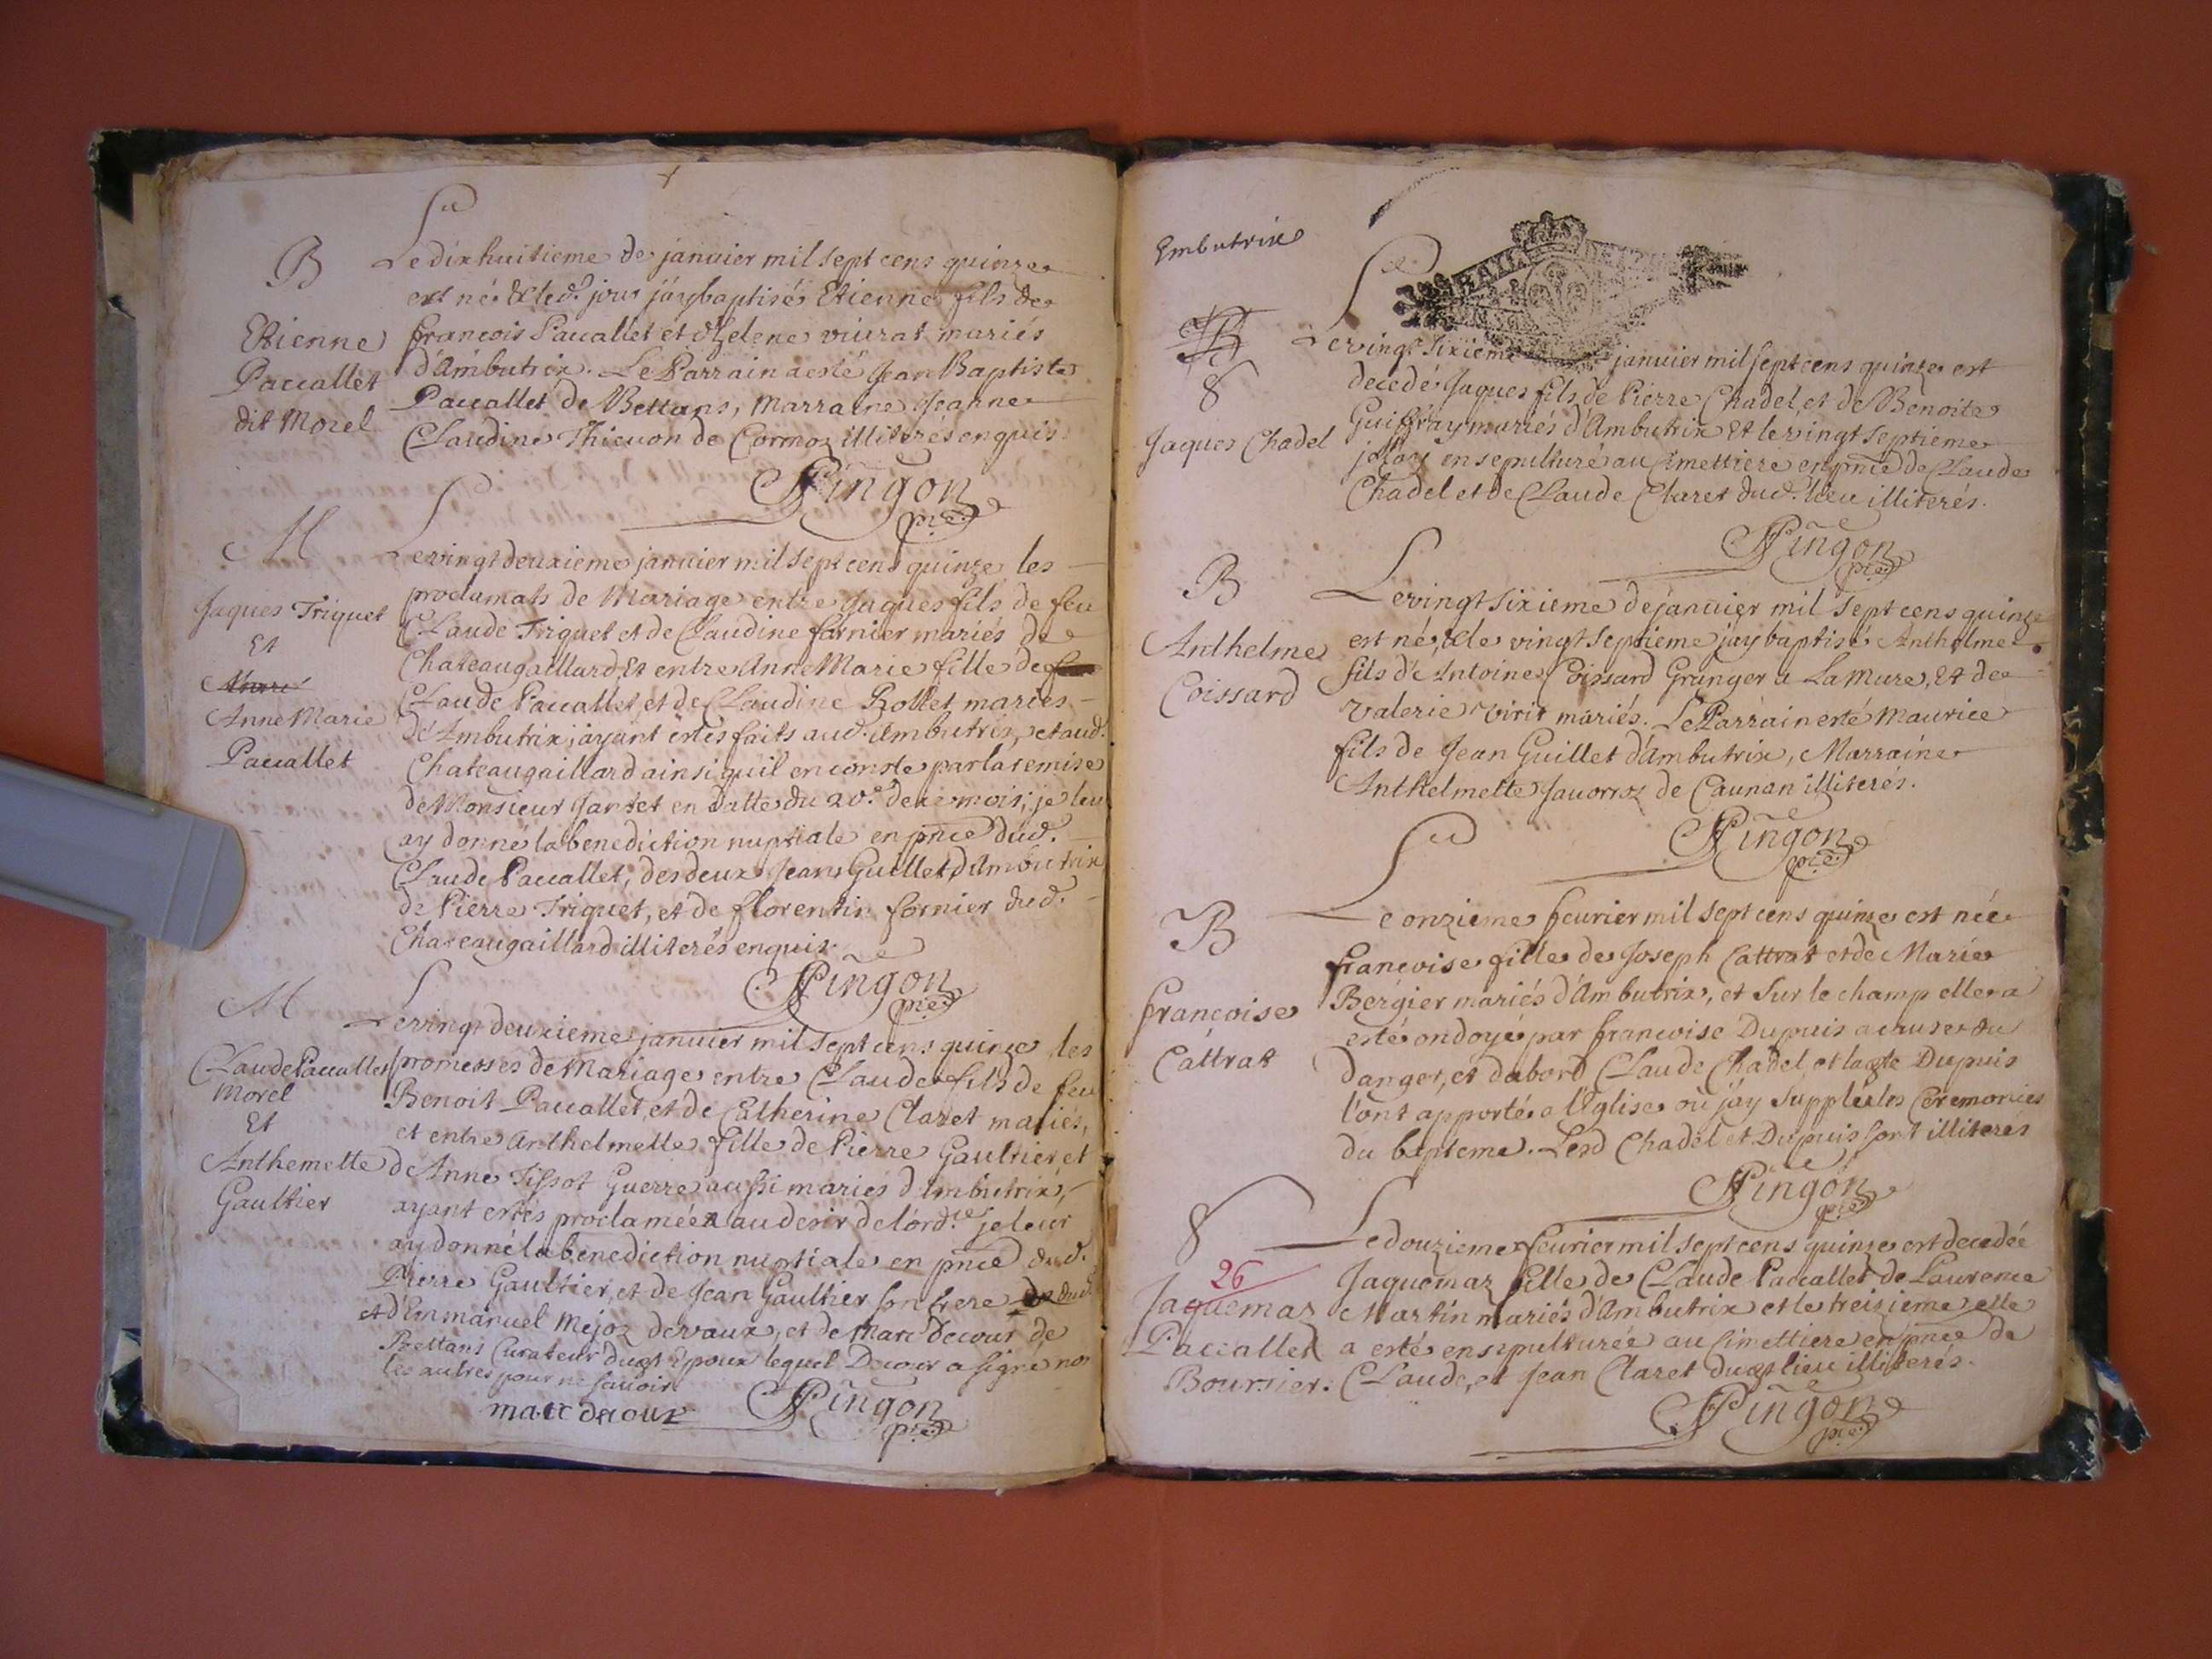 B
Etienne
Paccallet
dit Morel
Le dixhuitieme de janvier mil sept cens quinze
est né & led. jour j'ay baptisé Etienne fils de
francois Paccallet et d'helene viurat mariés
d'Ambutrix. Le Parrain a esté Jean Baptiste
Paccallet de Bettans, Marraine Jeanne
Claudine Thievon de Cormoz illiterés enquis
Pingon
M
Jaques Triquet
Et
Anne Marie
Paccallet
Le vingt deuxieme janvier mil sept cens quinze les
proclamats de Mariage entre Jaques fils de feu
Claude Triquet et de Claudine fornier mariés de
Chateaugaillard Et entre Anne Marie fille de
Claude Paccallet et de Claudine Rollet mariés
d'Ambutrix, ayant estés faits aud. Ambutrix, et aud.
Chateaugaillard ainsi quil en conste par la remise
de Monsieur Jantet en datte du 20e. de ce mois, je leur
ay donné la benediction nuptiale en pnce dud.
Claude Paccallet, des deux Jeans Guillet d'Ambutrix
de Pierre Triquet, et de florentin fornier dud.
Chateaugaillard illiterés enquis
Pingon
M
Claude Paccallet
Morel
Et
Anthemette
Gaultier
Le vingt deuxieme janvier mil sept cens quinze les
promesses de Mariage entre Claude fils de feu
Benoit Paccallet, et de Catherine Claret mariés,
et entre Anthelmette fille de Pierre Gaultier et
de Anne Tissot Guerre aussi mariés d'Ambutrix,
ayant estés proclamées au desir de l'ord.ce je leur
ay donné la benediction nuptiale en pnce dud.
Pierre Gaultier, et de Jean Gaultier son frere
et d'Emmanuel Mejoz de vaux, et de Marc Decour de
Bettans Curateur dudt Epoux lequel Decour a signé non
les autres pour ne scavoir
marc decour Pingon
Embutrix
8
Jaques Chadel
Le vingt sixieme janvier mil sept cens quinze est
decedé Jaques fils de Pierre Chadel et de Benoite
Guiffray mariés d'Ambutrix Et le vingt septieme
je l'ay ensepulturé au Cimettiere en pnce de Claude
Chadel et de Claude Claret dud. lieu illiterés.
Pingon
B
Anthelme
Coissard
Le vingt sixieme de janvier mil sept cens quinze
est né, & le vingt septieme jay baptisé Anthelme
fils d'Antoine Coissard Granger a La Mure, Et de
Valerie Virit mariés. Le Parrain esté Maurice
fils de Jean Guillet d'Ambutrix, Marraine
Anthelmette Jauorroz de Caunan illiterés.
Pingon
B
francoise
Cattrat
Le onzieme feurier mil sept cens quinze est née
francoise fille de Joseph Cattrat et de Marie
Bergier mariés d'Ambutrix, et sur le champ elle a
esté ondoyé par francoise Dupuis a cause du
danger, et d'abord Claude Chadel et ladte Dupuis
l'ont apporté a l'Eglise ou j'ay supplée les Ceremonies
du bapteme. Lesd Chadel et Dupuis sont illiterés
Pingon
8
26
Jaquemaz
Paccallet
Boursier.
Le douzieme feurier mil sept cens quinze est decedée
Jaquemaz fille de Claude Paccallet de Laurence
Martin mariés d'Ambutrix et le treizieme elle
a esté ensepulturée au Cimettiere en pnce de
Claude, et Jean Claret dudt lieu illiterés.
Pingon